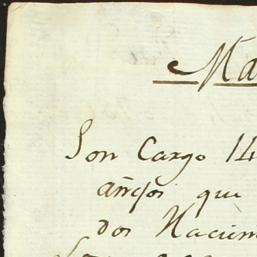 Ma
Son Cargo 14
añejos que
dos Nacim